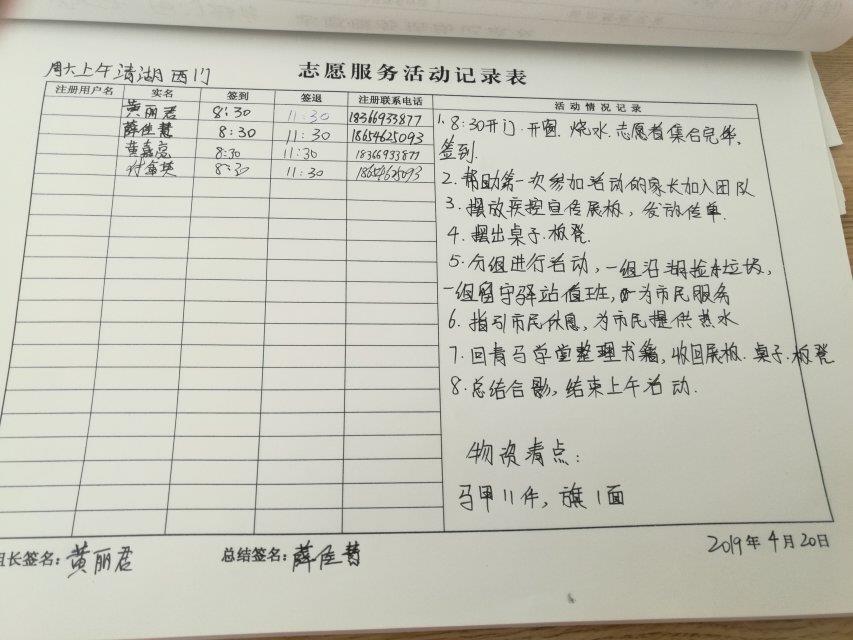 周六上午清湖西门
志愿服务活动记录表
注册用户名 实名 签到 签退 注册联系电话 活动情况记录
黄丽君 8:30 11:30 18366933877
薛佳慧 8:30 11:30 18654625093
黄嘉亮 8:30 11:30 18366933877
付金英 8:30 11:30 18654625093
1. 8:30开门.开窗.烧水.志愿者集合完毕、
签到.
2.帮助第一次参加活动的家长加入团队
3.摆放疾控宣传展板,发放传单.
4.摆出桌子.板凳.
5.分组进行活动,一组沿湖捡垃圾,
一组留守驿站值班,为市民服务
6.指引市民休息,为市民提供热水
7.回青马学堂整理书籍,收回展板.桌子.板凳
8.总结合影,结束上午活动.
物资清点:
马甲11件,旗1面
组长签名:黄丽君 总结签名:薛佳慧
2019年4月20日